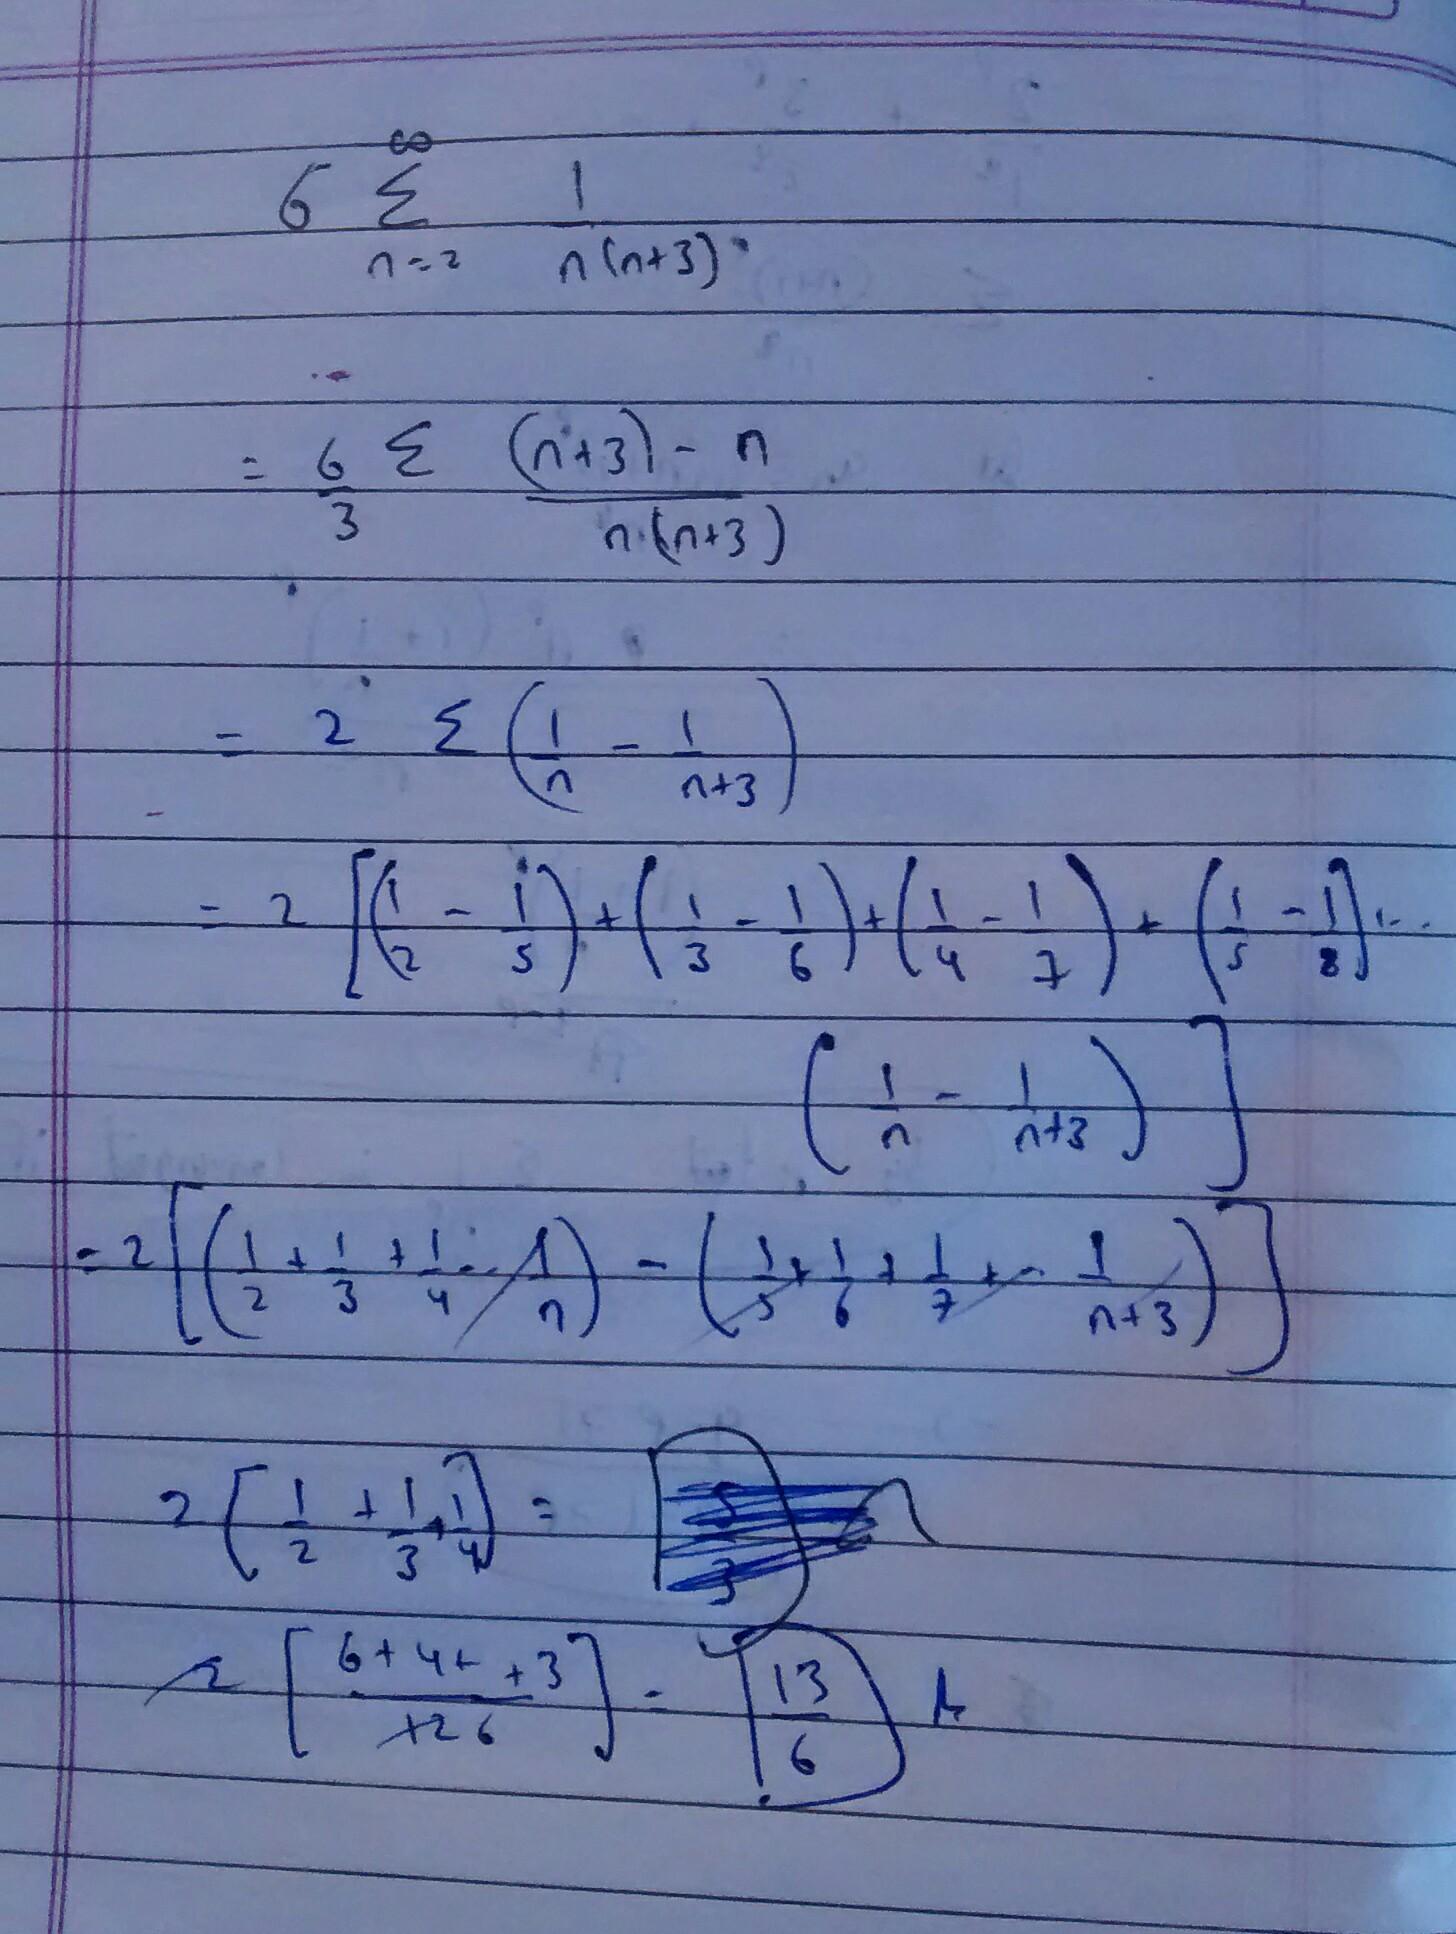 6 ∞Σn=2 1/n(n+3)
= 6/3 Σ (n+3) - n / n(n+3)
= 2 Σ (1/n - 1/n+3)
= 2 [(1/2 - 1/5) + (1/3 - 1/6) + (1/4 - 1/7) + (1/5 - 1/8) ...
(1/n - 1/n+3)]
= 2 [(1/2 + 1/3 + 1/4 -- 1/n) - (1/5 + 1/6 + 1/7 + - 1/n+3)]
2 [1/2 + 1/3 + 1/4] =
2 [6+4+ +3 / 12 6] = 13/6